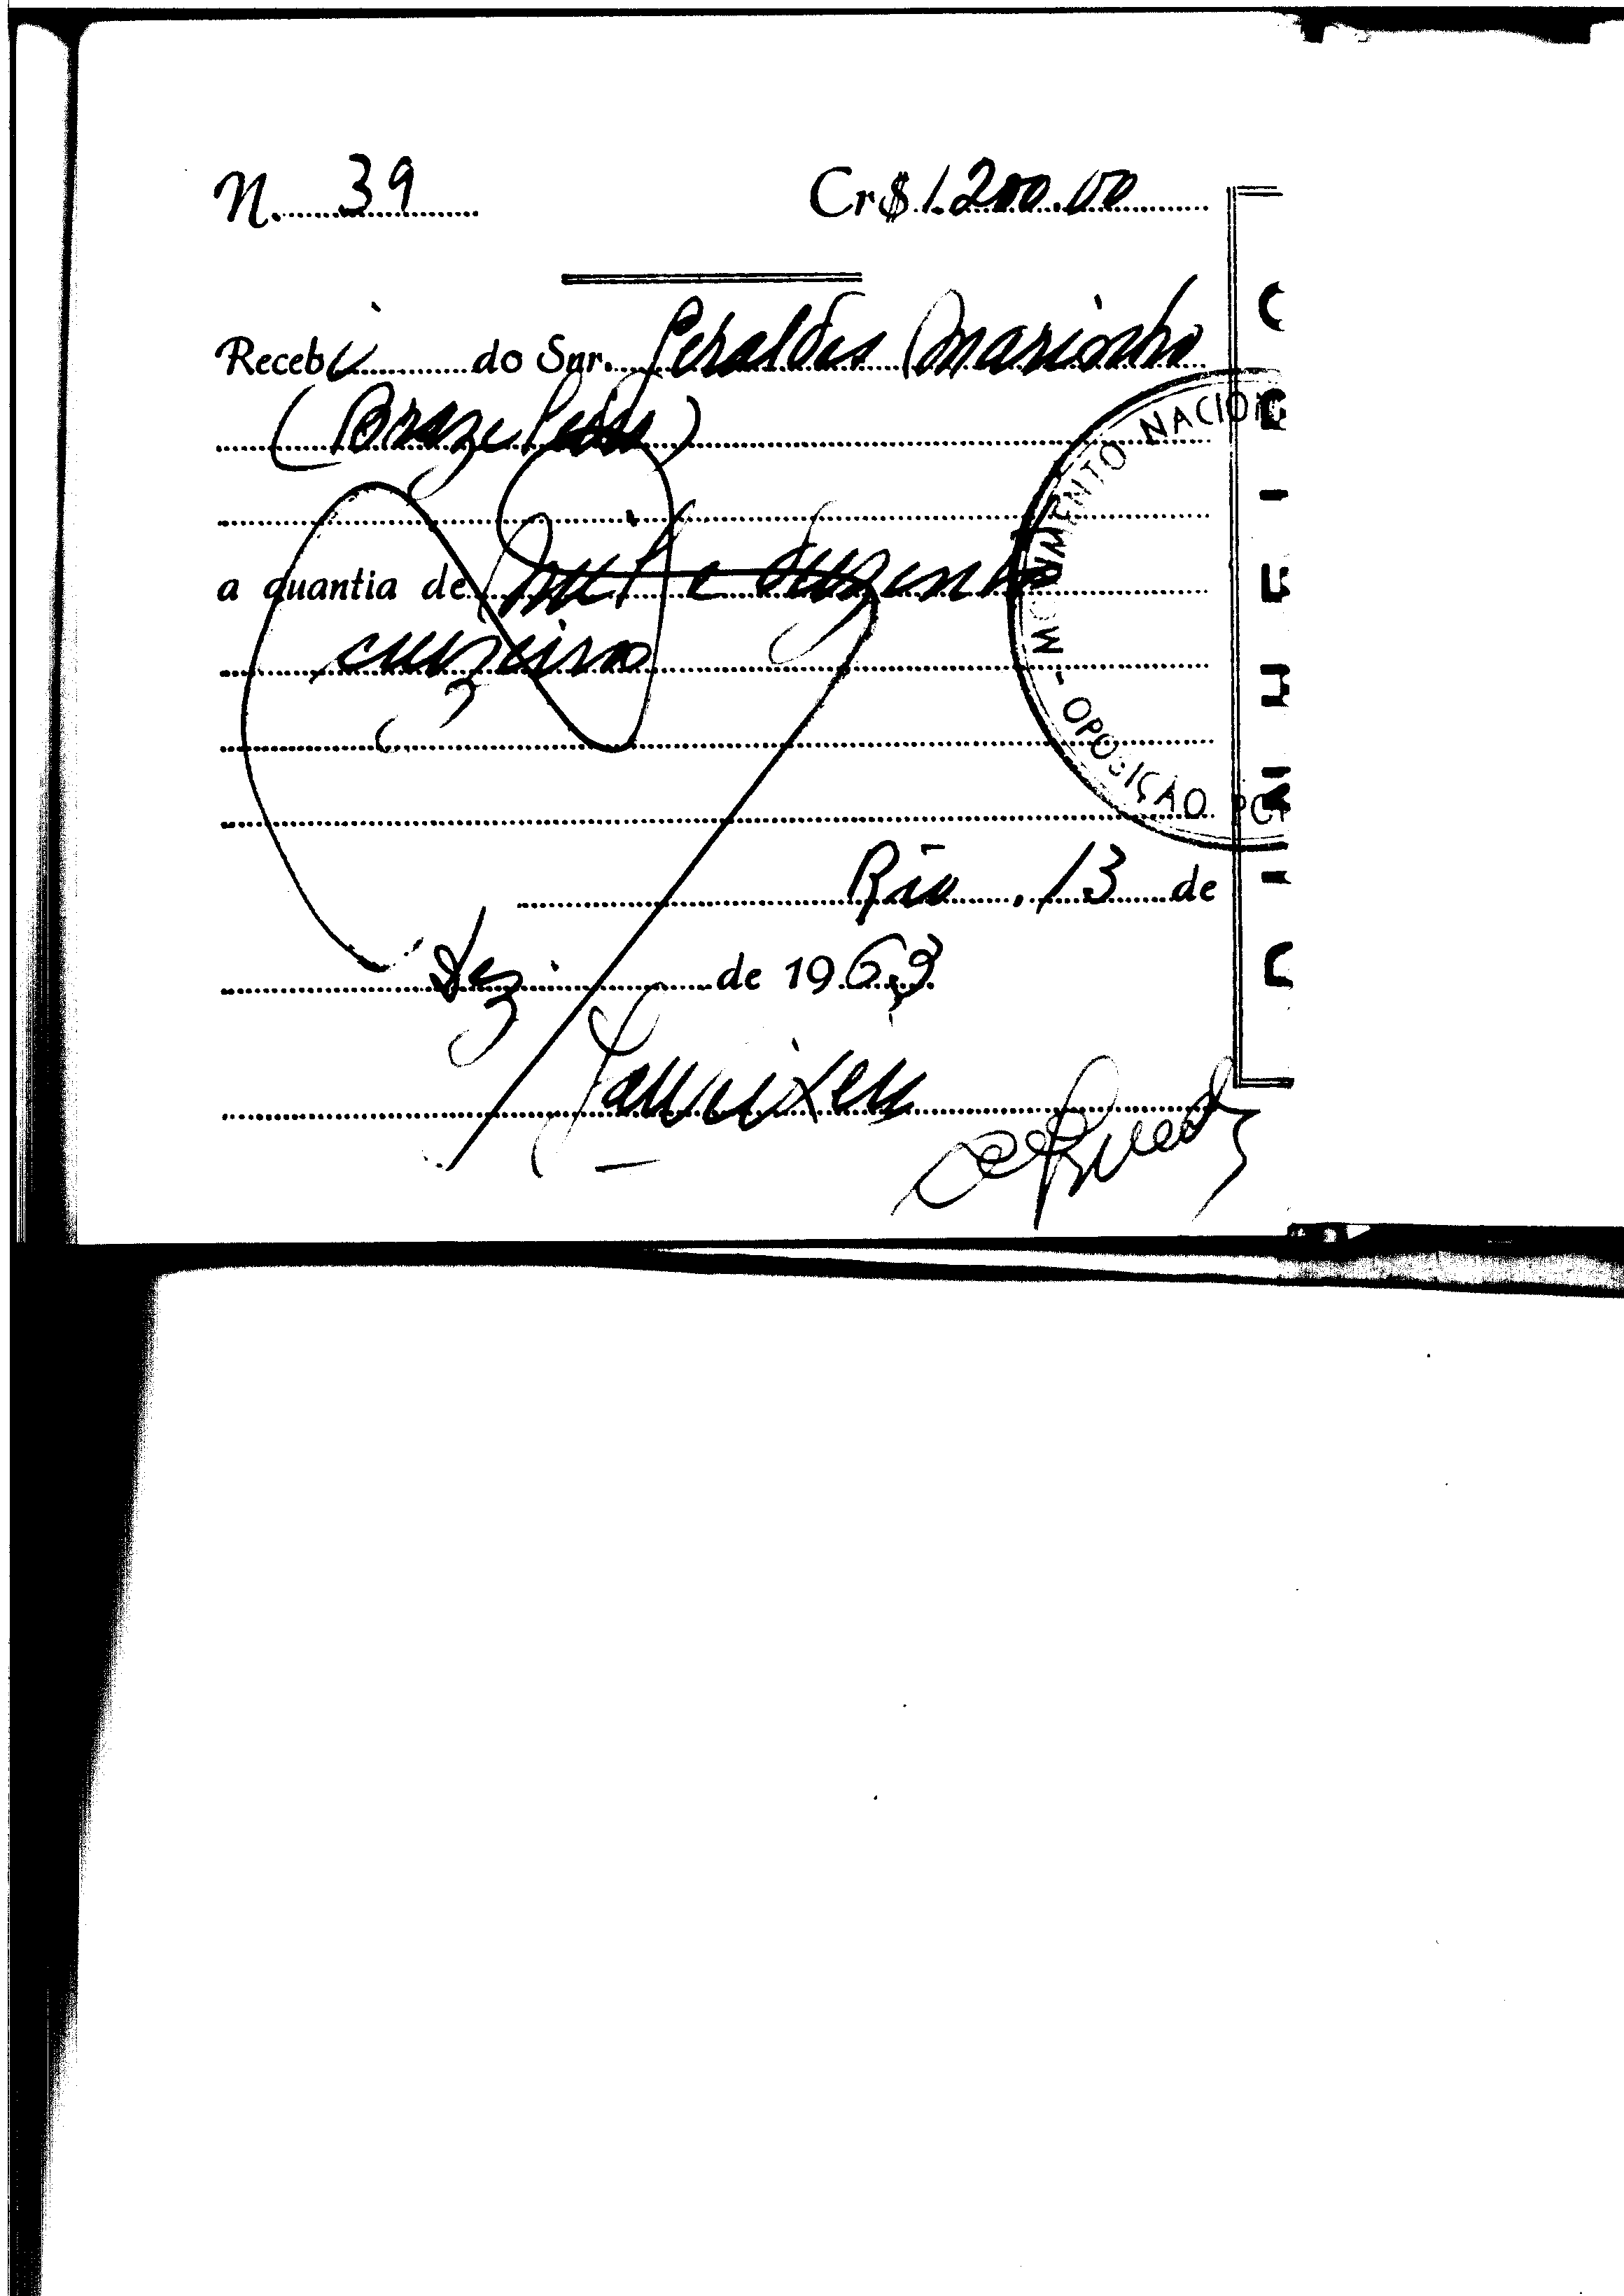 N. 39 Cr$ 1.200.00
Recebi do Snr. Geraldes Marinho
a quantia de mil e duzentos
cruzeiros
Rio, 13 de
Dez de 1963
MOVIMENTO NACION
- OPOSIÇÃO PO